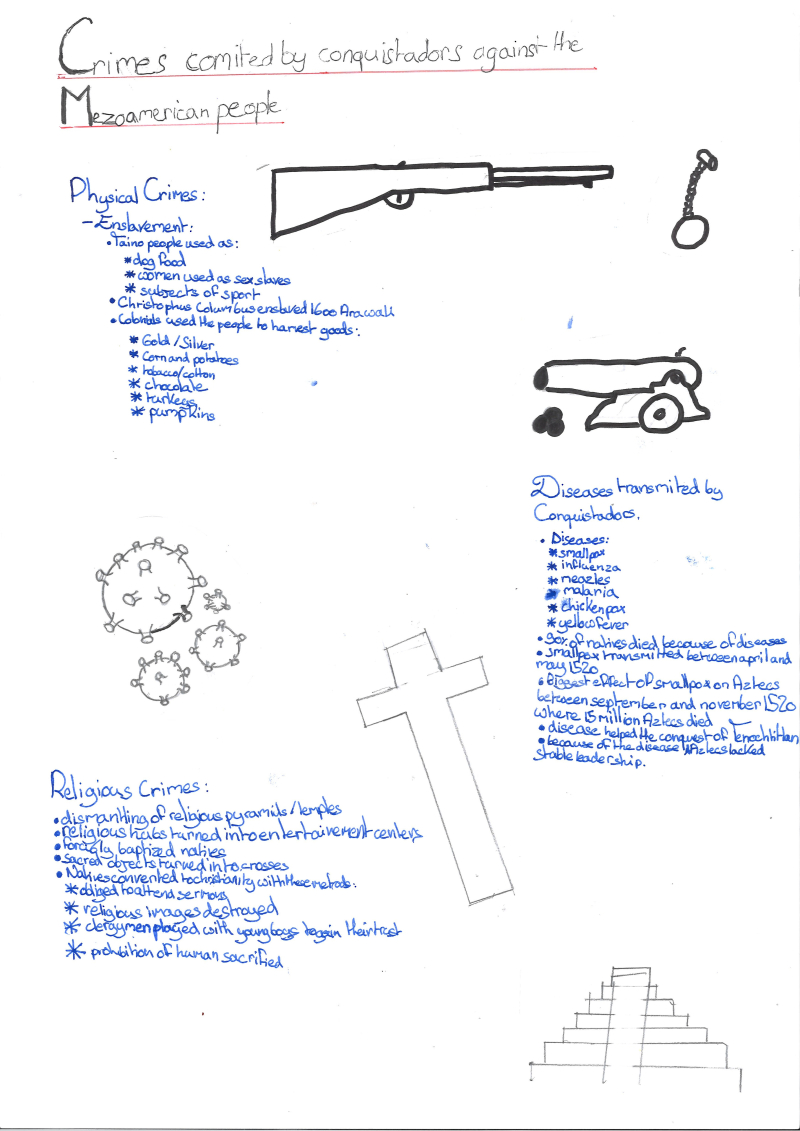 Crimes comited by conquistadors against the
Mezoamerican people
Physical Crimes:
- Enslavement:
• Taino people used as:
* dog food
* women used as sex slaves
* subjects of sport
• Christophus Columbus enslaved 1600 Arawak
• Colonials used the people to harvest goods:
* Gold / Silver
* Corn and potatoes
* tobacco/cotton
* chocolate
* turkeys
* pumpkins
Diseases transmited by
Conquistadors.
• Diseases:
* smallpox
* influenza
* meazles
* malaria
* chickenpox
* yellow fever
• 90% of natives died because of diseases
• smallpox transmitted between april and
may 1520
• Biggest effect of smallpox on Aztecs
between september and november 1520
where 15 million Aztecs died
• disease helped the conquest of Tenochtitlan
• because of the disease Aztecs lacked
stable leadership.
Religious Crimes:
• dismantling of religious pyramids / temples
• religious hubs turned into entertainement centers
• forcefly baptized natives
• sacred objects turned into crosses
• Natives convented to christianity with these metods:
* obliged to attend sermons
* religious images destroyed
* clergymen played with young boys to gain their trust
* prohibition of human sacrified